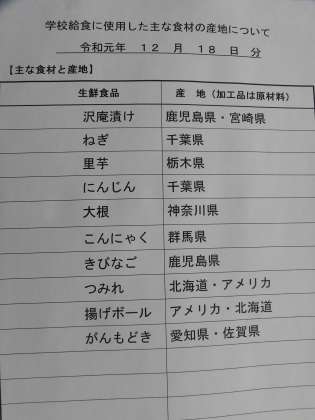 学校給食に使用した主な食材の産地について
令和元年 12 月 18 日 分
【主な食材と産地】
生鮮食品 産 地（加工品は原材料）
沢庵漬け 鹿児島県・宮崎県
ねぎ 千葉県
里芋 栃木県
にんじん 千葉県
大根 神奈川県
こんにゃく 群馬県
きびなご 鹿児島県
つみれ 北海道・アメリカ
揚げボール アメリカ・北海道
がんもどき 愛知県・佐賀県